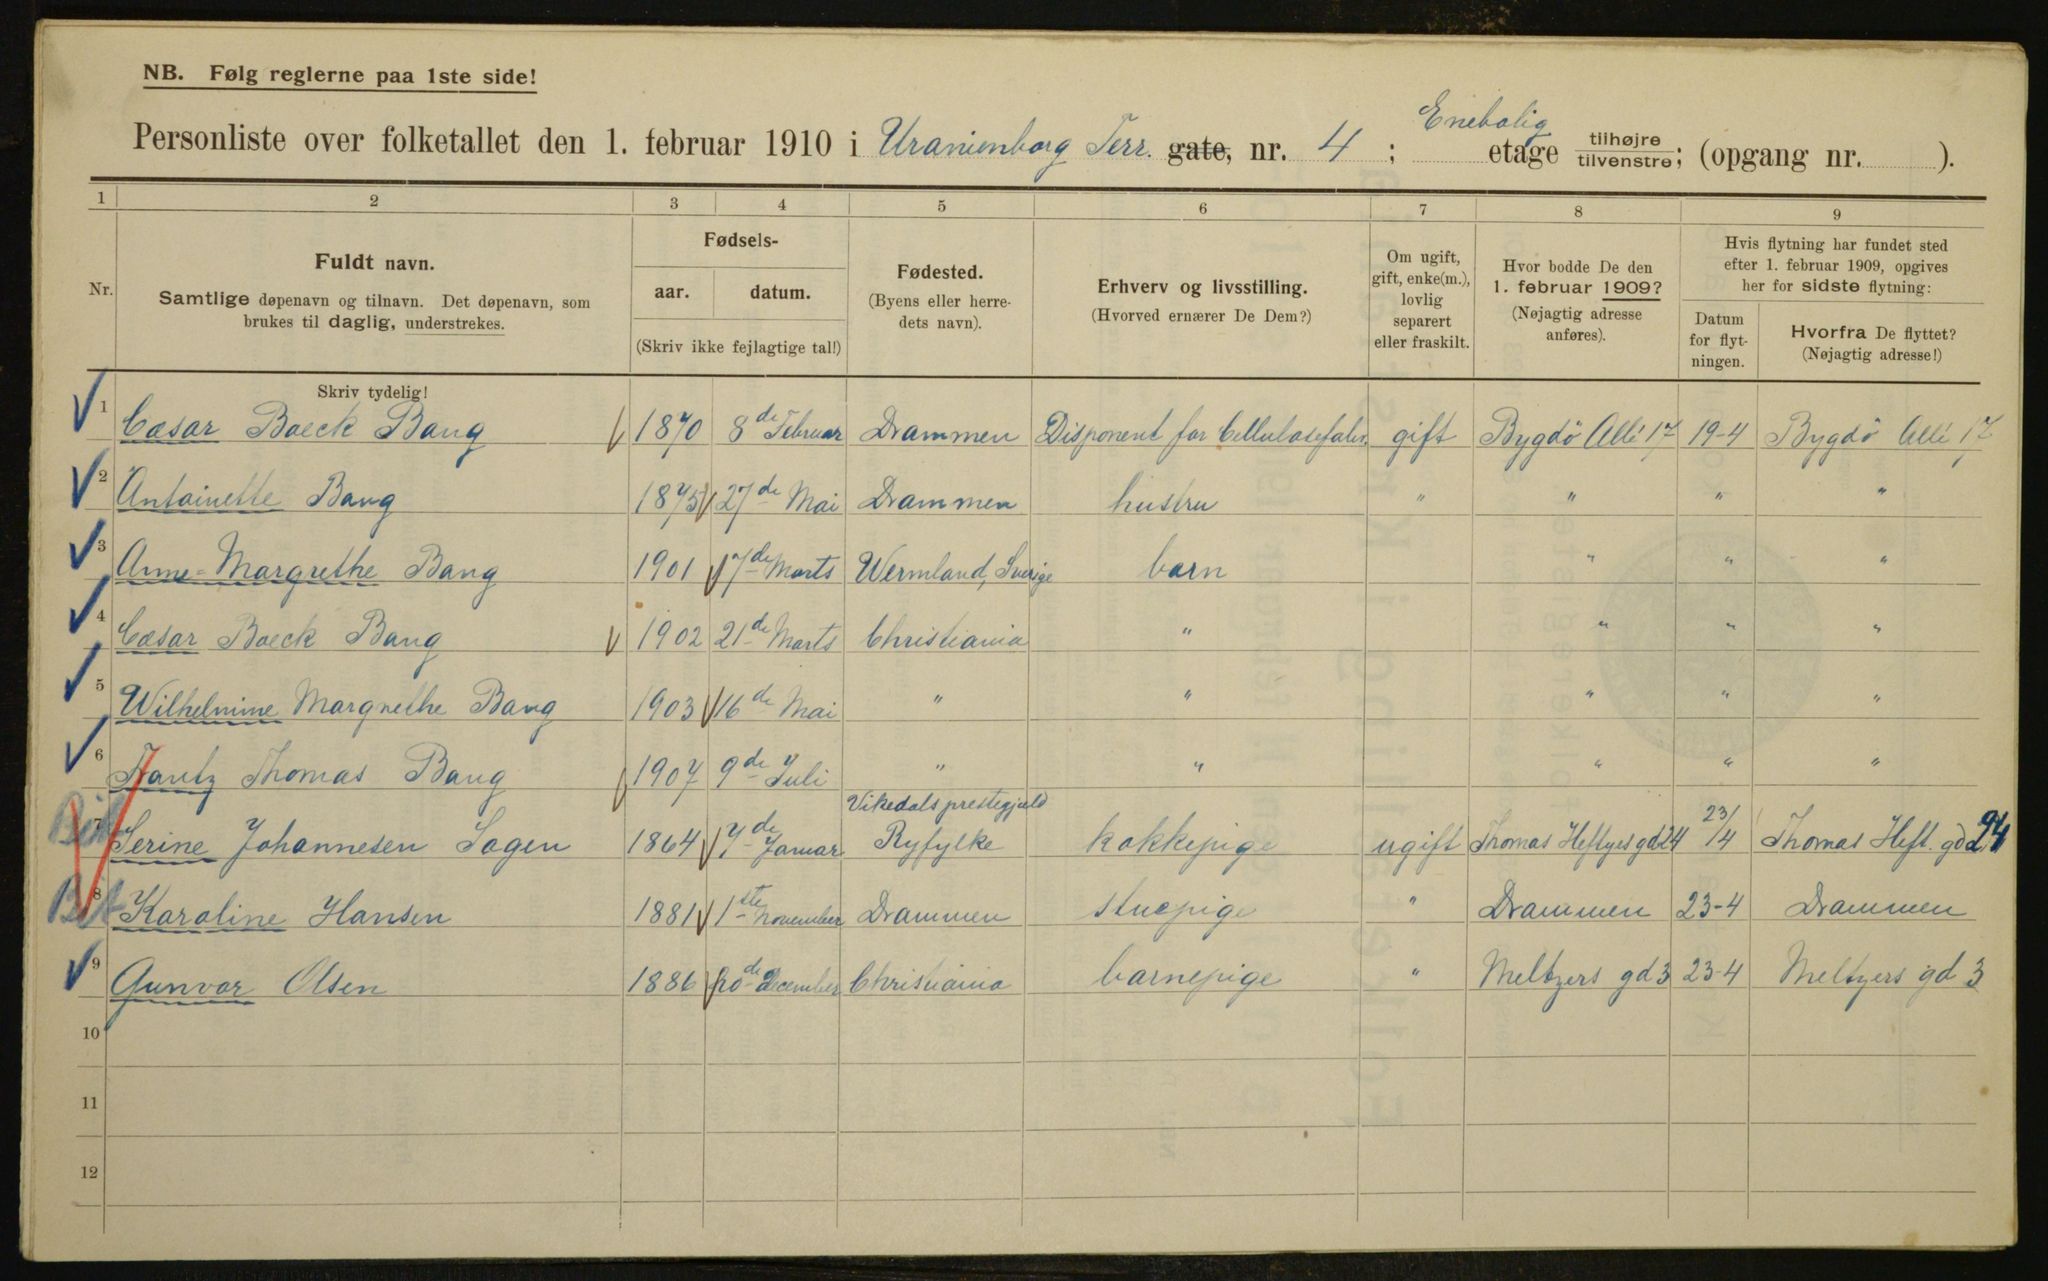 NB. Følg reglerne paa 1ste side!
Enebolig
Personliste over folketallet den 1. februar 1910 i Uranienborg Terr. gate, nr. 4 ; etage tilhøjre/tilvenstre; (opgang nr. ).
1 2 3 4 5 6 7 8 9
Nr.
Fuldt navn.
Samtlige døpenavn og tilnavn. Det døpenavn, som
brukes til daglig, understrekes.
Skriv tydelig!
Fødsels-
aar. datum.
(Skriv ikke fejlagtige tal!)
Fødested.
(Byens eller herre-
dets navn).
Erhverv og livsstilling.
(Hvorved ernærer De Dem?)
Om ugift,
gift, enke(m.),
lovlig
separert
eller fraskilt.
Hvor bodde De den
1. februar 1909?
(Nøjagtig adresse
anføres).
Hvis flytning har fundet sted
efter 1. februar 1909, opgives
her for sidste flytning:
Datum
for flyt-
ningen.
Hvorfra De flyttet?
(Nøjagtig adresse!)
1 Cæsar Boeck Bang 1870 8de Februar Drammen Disponent for Cellulosefabr. gift Bygdö Allé 17 19-4 Bygdö Allé 17
2 Antoinette Bang 1875 27de Mai Drammen hustru " " " "
3 Anne-Margrethe Bang 1901 17de Marts Wermland, Sverige barn " " "
4 Cæsar Boeck Bang 1902 21de Marts Christiania " " " "
5 Wilhelmine Margrethe Bang 1903 16de Mai " " " " "
6 Frantz Thomas Bang 1907 9de Juli " " " " "
Vikedals prestegjæld
7 Serine Johannesen Sagen 1864 7de Januar Ryfylke kokkepige ugift Thomas Heftyes gd 24 23/4 Thomas Heft. gd 24
8 Karoline Hansen 1881 1ste November Drammen stuepige " Drammen 23-4 Drammen
9 Gunvor Olsen 1886 20de December Christiania barnepige " Meltzers gd 3 23-4 Meltzers gd 3
10
11
12